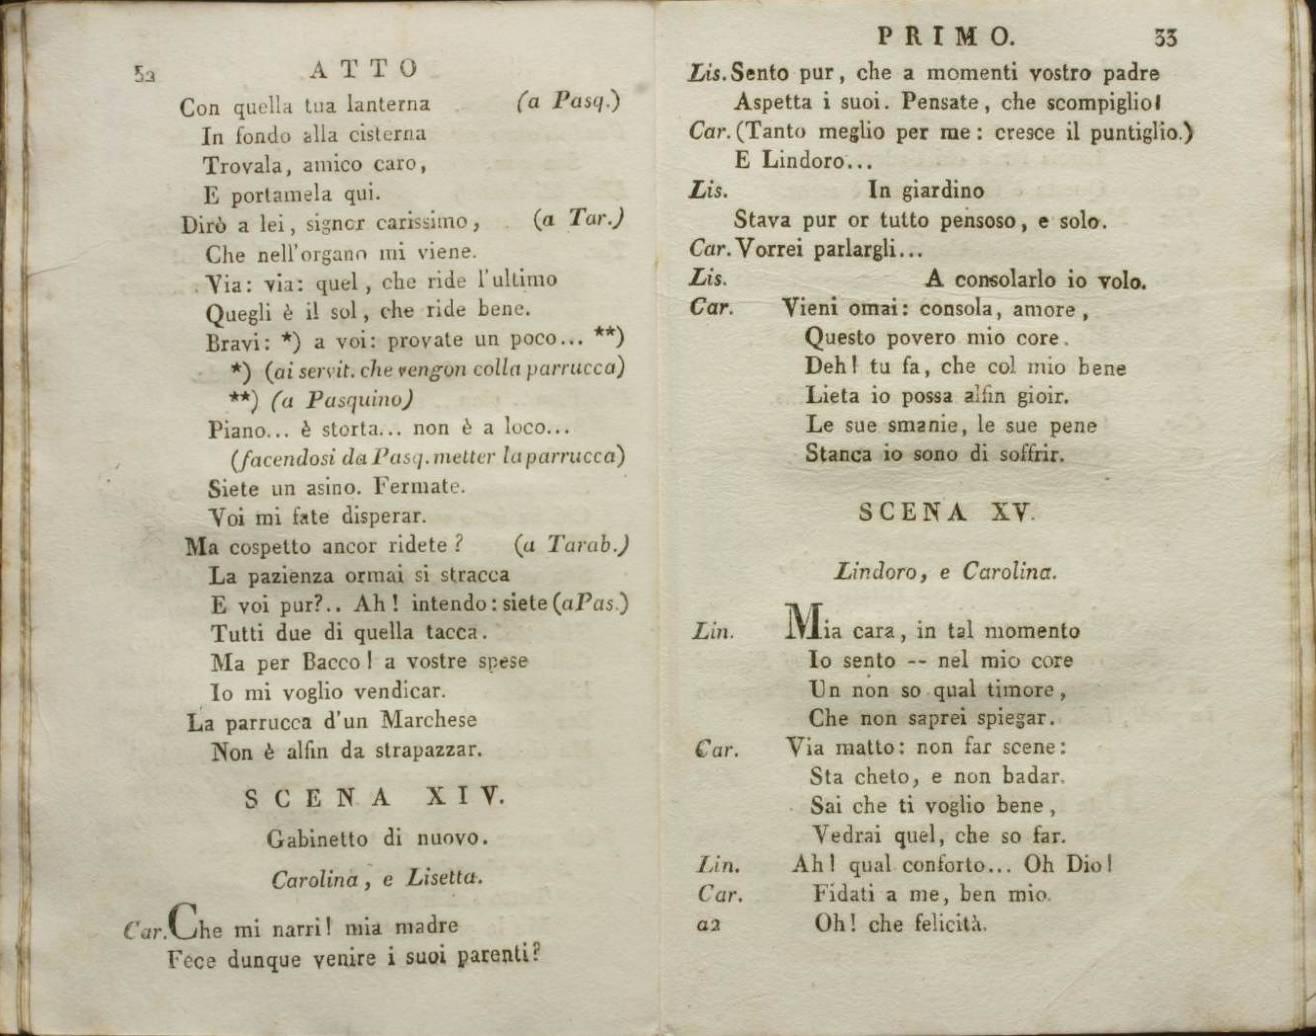 52 ATTO
Con quella tua lanterna (a Pasq.)
In fondo alla cisterna
Trovala, amico caro,
E portamela qui.
Dirò a lei, signor carissimo, (a Tar.)
Che nell'organo mi viene.
Via: via: quel, che ride l'ultimo
Quegli è il sol, che ride bene.
Bravi: *) a voi: provate un poco... **)
*) (ai servit. che vengon colla parrucca)
**) (a Pasquino)
Piano... è storta... non è a loco...
(facendosi da Pasq. metter la parrucca)
Siete un asino. Fermate.
Voi mi fate disperar.
Ma cospetto ancor ridete? (a Tarab.)
La pazienza ormai si stracca
E voi pur?.. Ah! intendo: siete (a Pas.)
Tutti due di quella tacca.
Ma per Bacco! a vostre spese
Io mi voglio vendicar.
La parrucca d'un Marchese
Non è alfin da strapazzar.
SCENA XIV.
Gabinetto di nuovo.
Carolina, e Lisetta.
Car. Che mi narri! mia madre
Fece dunque venire i suoi parenti?
PRIMO. 33
Lis. Sento pur, che a momenti vostro padre
Aspetta i suoi. Pensate, che scompiglio!
Car. (Tanto meglio per me: cresce il puntiglio.)
E Lindoro...
Lis. In giardino
Stava pur or tutto pensoso, e solo.
Car. Vorrei parlargli...
Lis. A consolarlo io volo.
Car. Vieni omai: consola, amore,
Questo povero mio core.
Deh! tu fa, che col mio bene
Lieta io possa alfin gioir.
Le sue smanie, le sue pene
Stanca io sono di soffrir.
SCENA XV.
Lindoro, e Carolina.
Lin. Mia cara, in tal momento
Io sento -- nel mio core
Un non so qual timore,
Che non saprei spiegar.
Car. Via matto: non far scene:
Sta cheto, e non badar.
Sai che ti voglio bene,
Vedrai quel, che so far.
Lin. Ah! qual conforto... Oh Dio!
Car. Fidati a me, ben mio.
a2 Oh! che felicità.